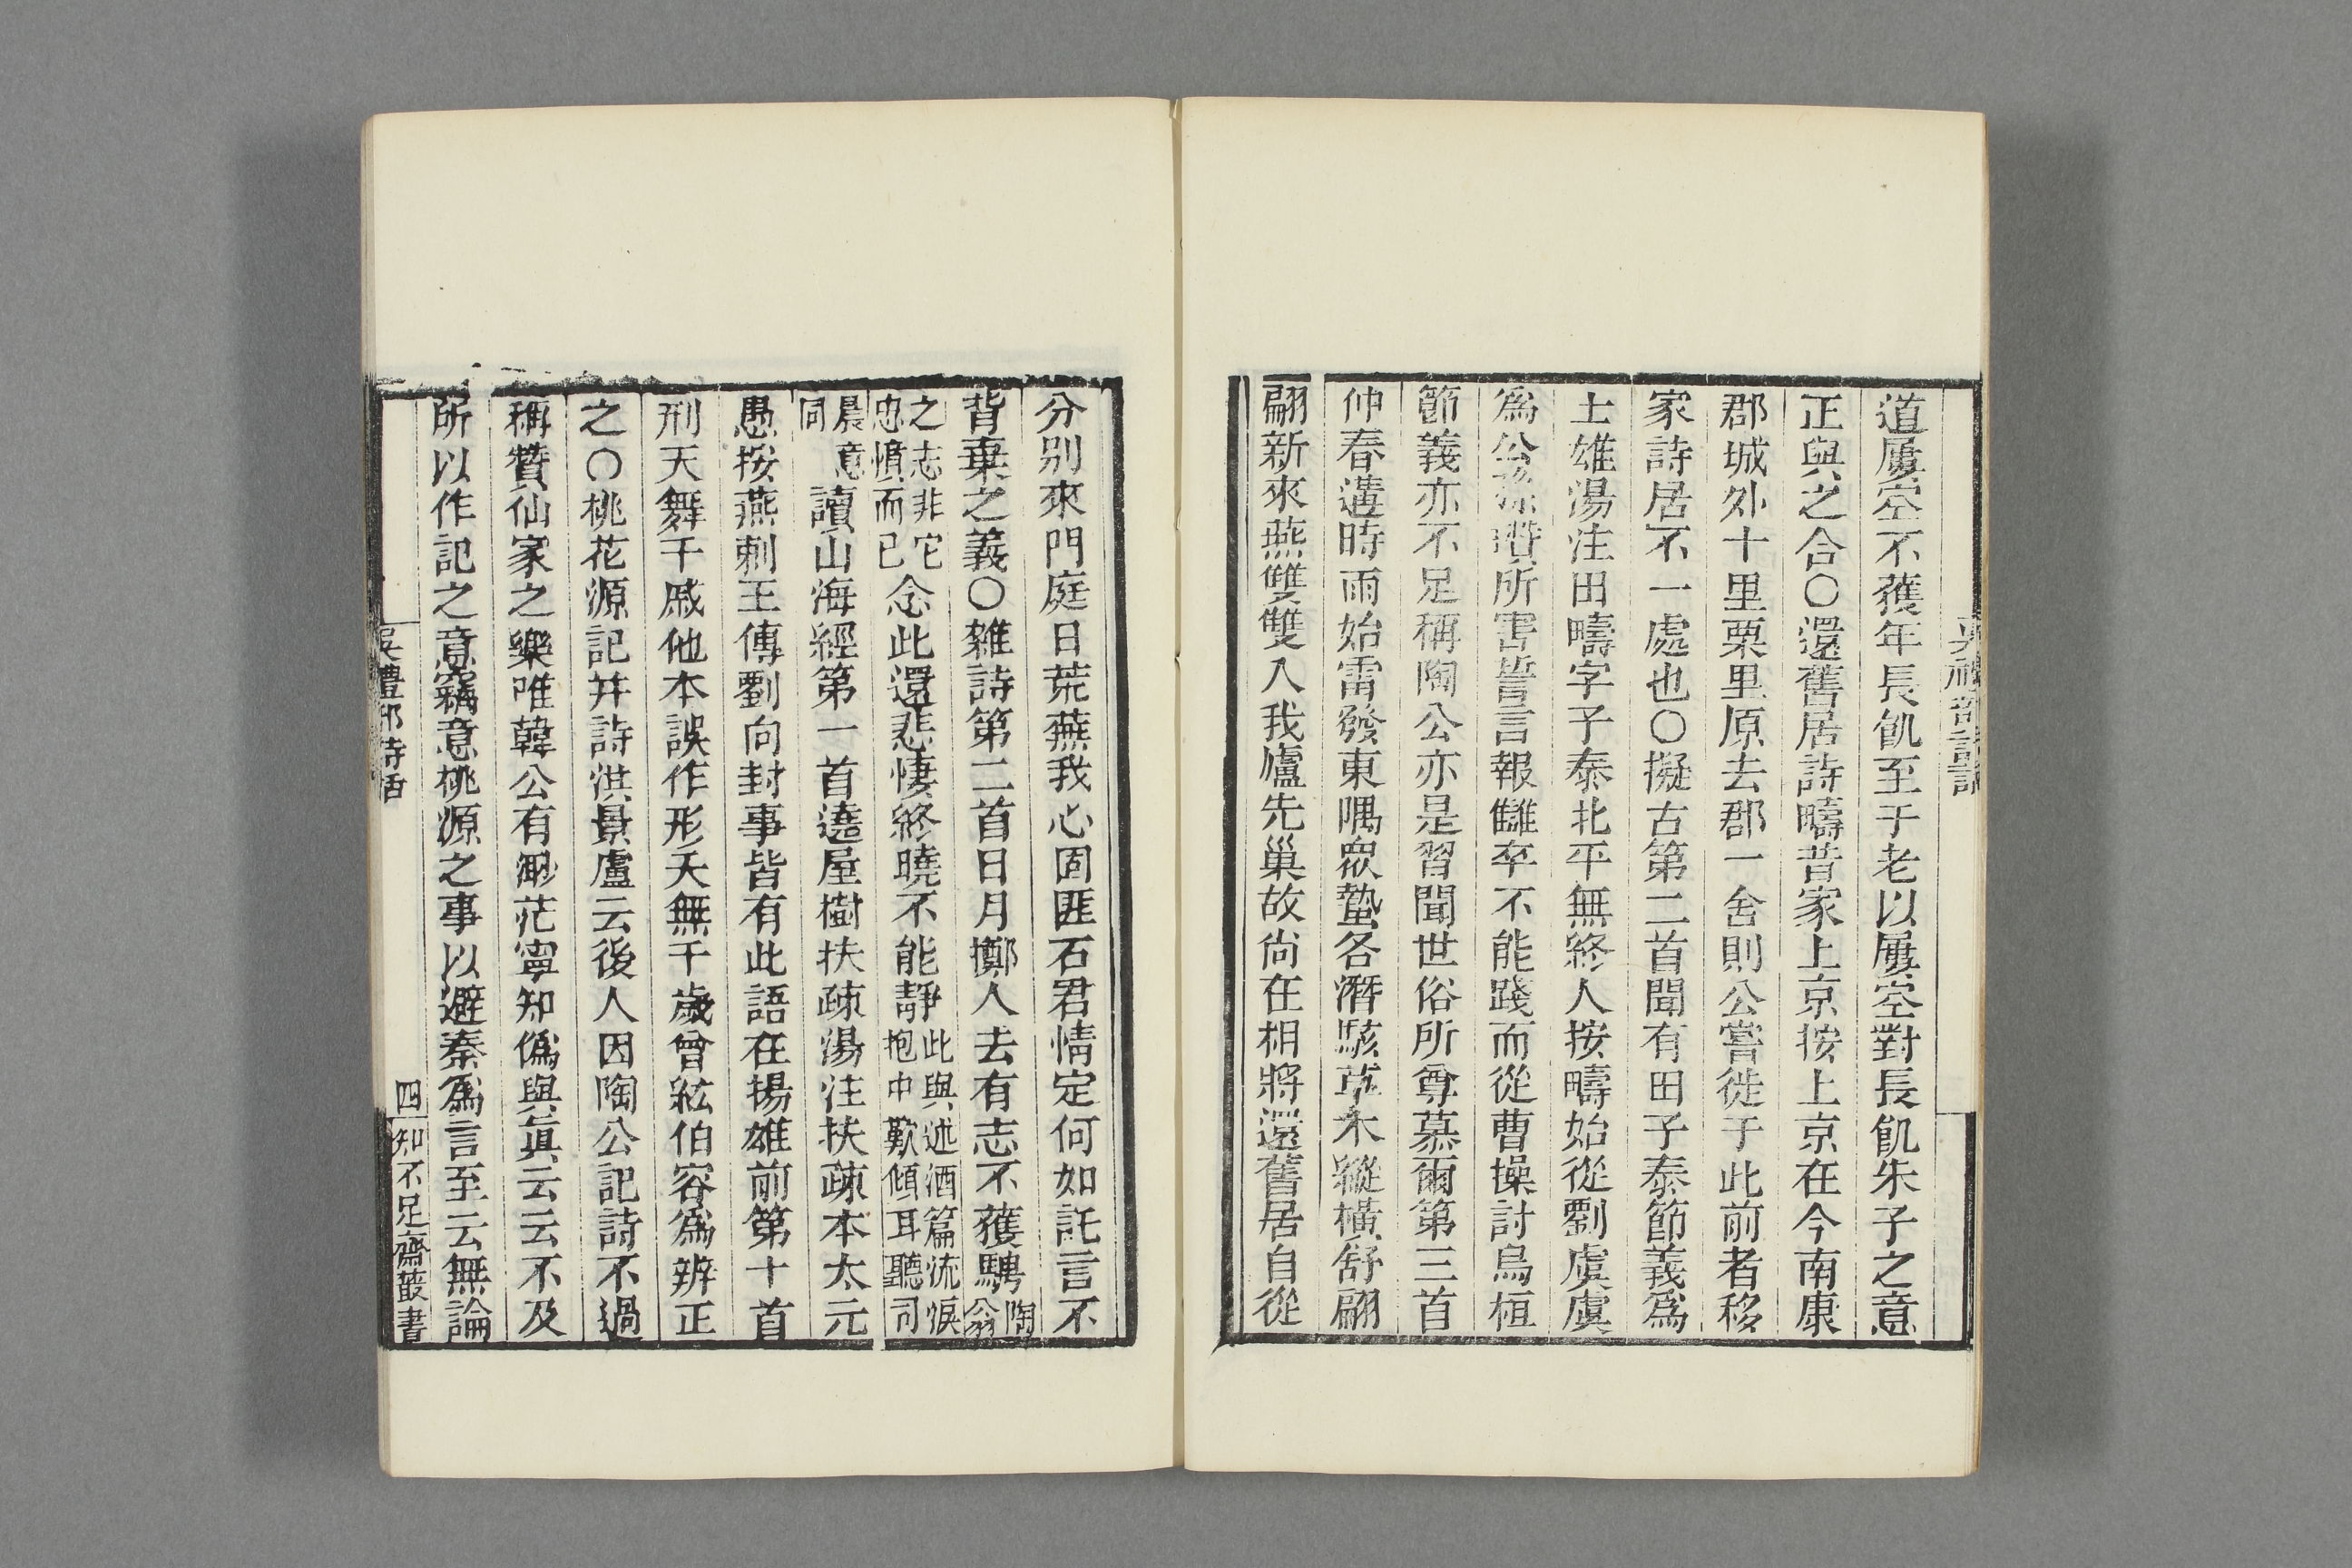 道屢空不獲年長飢至于老以屢空對長飢朱子之意
正與之合○還舊居詩疇昔家上京按上京在今南康
郡城外十里栗里原去郡一舍則公嘗徙于此前者移
家詩居不一處也○擬古第二首聞有田子泰節義爲
士雄湯注田疇字子泰北平無終人按疇始從劉虞虞
爲公孫瓚所害誓言報讎卒不能踐而從曹操討烏桓
節義亦不足稱陶公亦是習聞世俗所尊慕爾第三首
仲春遘時雨始雷發東隅眾蟄各潛駭草木縱橫舒翩
翩新來燕雙雙入我廬先巢故尚在相將還舊居自從
分別來門庭日荒蕪我心固匪石君情定何如託言不
背棄之義○雜詩第二首日月擲人去有志不獲騁陶
翁
之志非它
忠憤而已
念此還悲悽終曉不能靜
此與述酒篇流淚
抱中歎傾耳聽司
晨意
同
讀山海經第一首遶屋樹扶疎湯注扶疎本太元
愚按燕剌王傳劉向封事皆有此語在揚雄前第十首
刑天舞干戚他本誤作形夭無千歲曾紘伯容爲辨正
之○桃花源記并詩洪景盧云後人因陶公記詩不過
稱贊仙家之樂唯韓公有渺茫寧知僞與眞云云不及
所以作記之意竊意桃源之事以避秦爲言至云無論
吳禮部詩話
四
知不足齋叢書